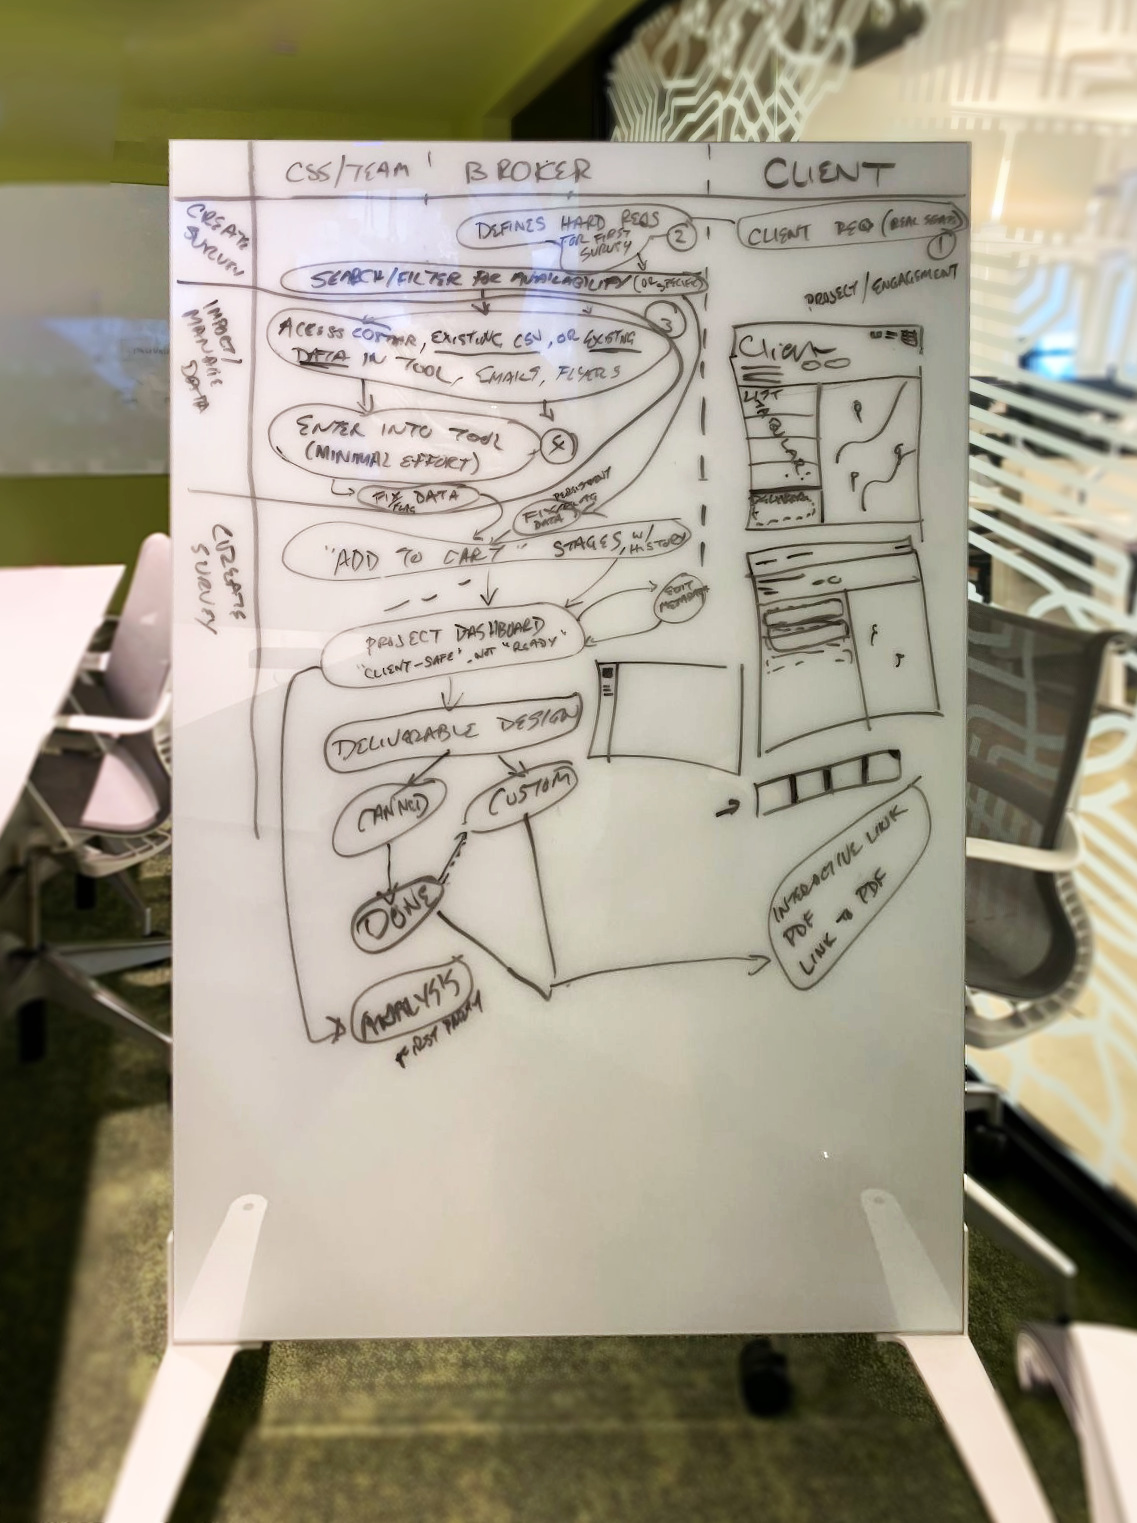 CSS/TEAM
BROKER
CLIENT
CREATE
SURVEY
DEFINES HARD REQS
FOR FIRST
SURVEY
2
CLIENT REQ (REAL SEATS)
1
SEARCH/FILTER FOR AVAILABILITY
PROJECT/ENGAGEMENT
IMPORT/
MANAGE
DATA
3
ACCESS COSTAR, EXISTING CSV, OR EXISTING
DATA IN TOOL, EMAILS, FLYERS
ENTER INTO TOOL
(MINIMAL EFFORT)
4
FIX DATA
FLAG
PERSISTENT
FIX
DATA
Client
LIST
CREATE
SURVEY
"ADD TO CART" STAGES, W/
HISTORY
EDIT
METADATA
PROJECT DASHBOARD
"CLIENT-SAFE", NOT "READY"
DELIVERABLE DESIGN
CANNED
CUSTOM
DONE
INTERACTIVE LINK
PDF
LINK TO PDF
ANALYSIS
FIRST PARTY